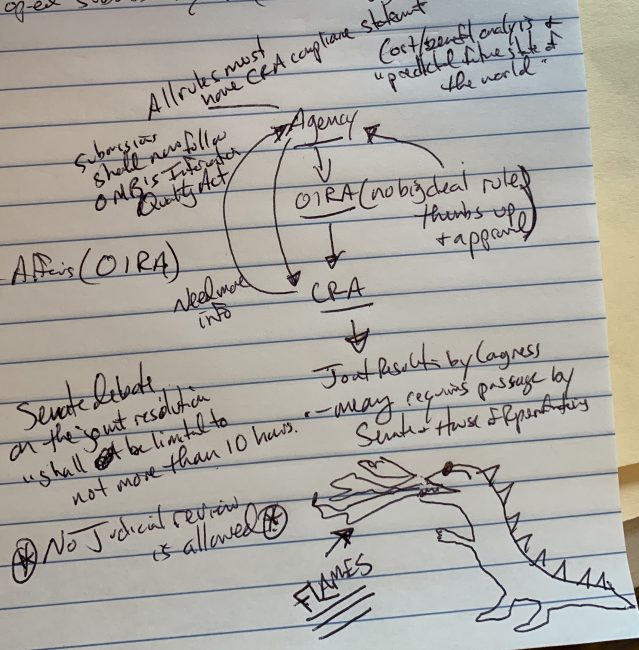 op-ed
All rules must
have CRA compliance statement
Cost/benefit analysis &
"predicted future state of
the world"
Submissions
shall now follow
OMB's Information
Quality Act
Agency
OIRA (no big deal rules)
thumbs up
+ approval
Affairs (OIRA)
Need more
info
CRA
Joint Resolution by Congress
- may requires passage by
Senate + House of Representatives
Senate debate
on the joint resolution
"shall be limited to
not more than 10 hours."
* No Judicial review
is allowed *
FLAMES